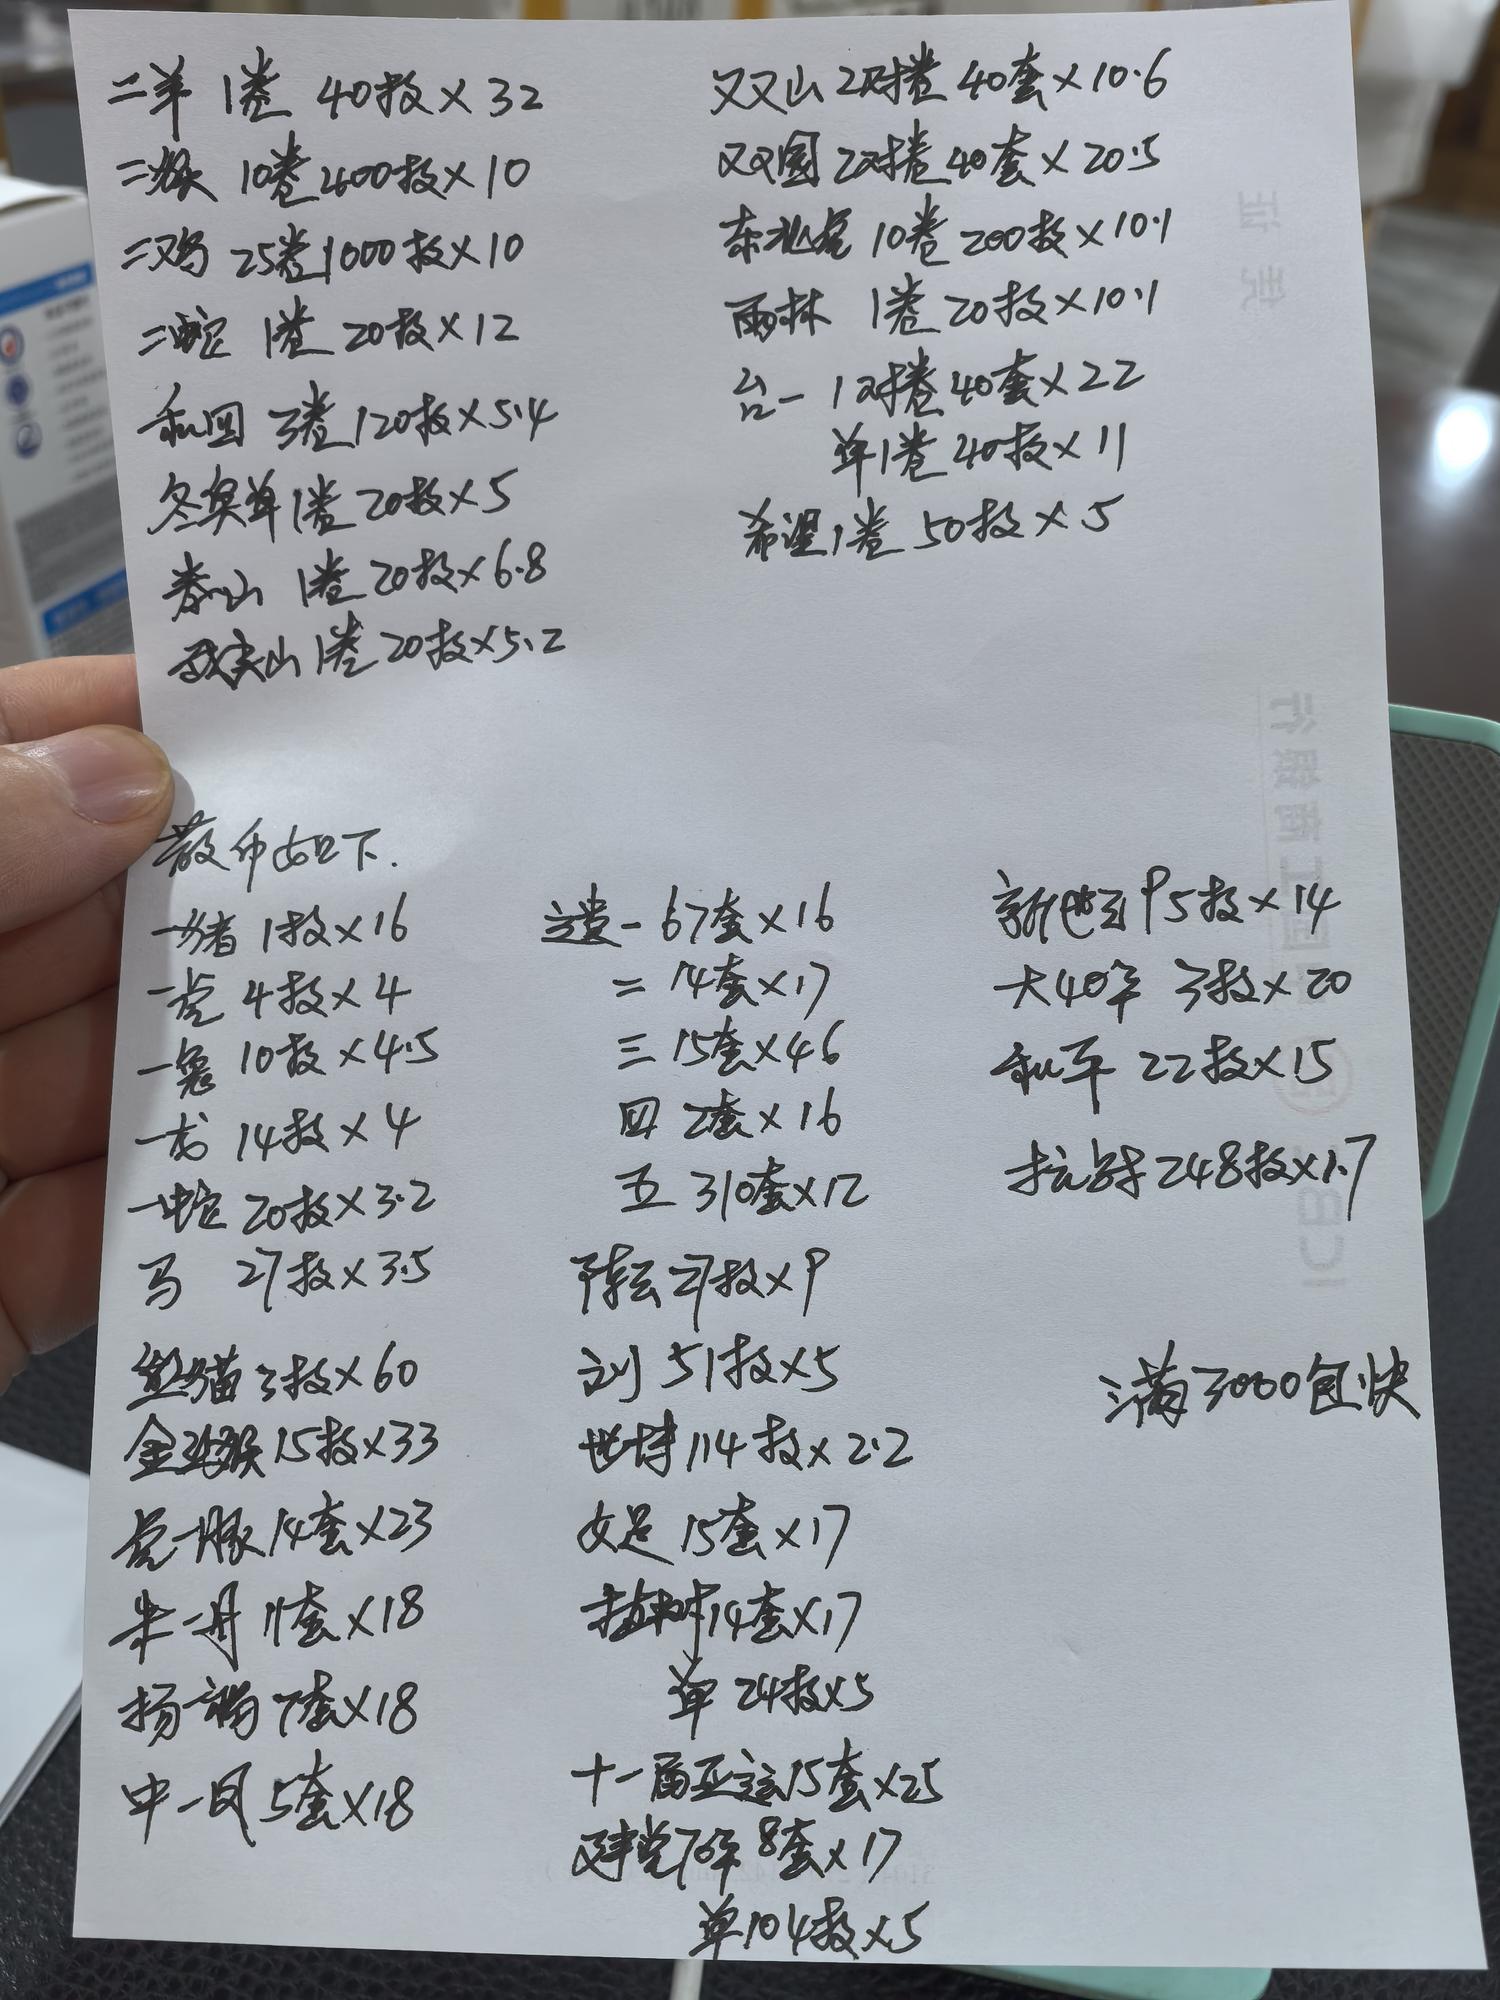 二羊 1卷 40枚×32
二猴 10卷400枚×10
二鸡 25卷1000枚×10
二蛇 1卷 20枚×12
和四 3卷120枚×5.4
冬奥单1卷20枚×5
泰山 1卷20枚×6.8
武夷山1卷20枚×5.2
双双山2对卷40套×10.6
双双园2对卷40套×20.5
东北虎10卷200枚×10.1
雨林 1卷20枚×10.1
台一 1对卷40套×22
单1卷40枚×11
希望1卷50枚×5
散币如下.
一猪1枚×16
一虎4枚×4
一兔10枚×4.5
一龙14枚×4
一蛇20枚×3.2
马 27枚×3.5
熊猫3枚×60
金丝猴15枚×33
虎一豚14套×23
朱一丹11套×18
扬一褐7套×18
中一凤5套×18
遗一67套×16
二 14套×17
三 15套×46
四 2套×16
五 310套×12
陈云27枚×9
刘 51枚×5
世博114枚×2.2
女足15套×17
植树14套×17
单24枚×5
十一届亚运15套×25
建党70年8套×17
单104枚×5
新世纪95枚×14
大40年 3枚×20
和平 22枚×15
抗战248枚×1.7
满3000包快